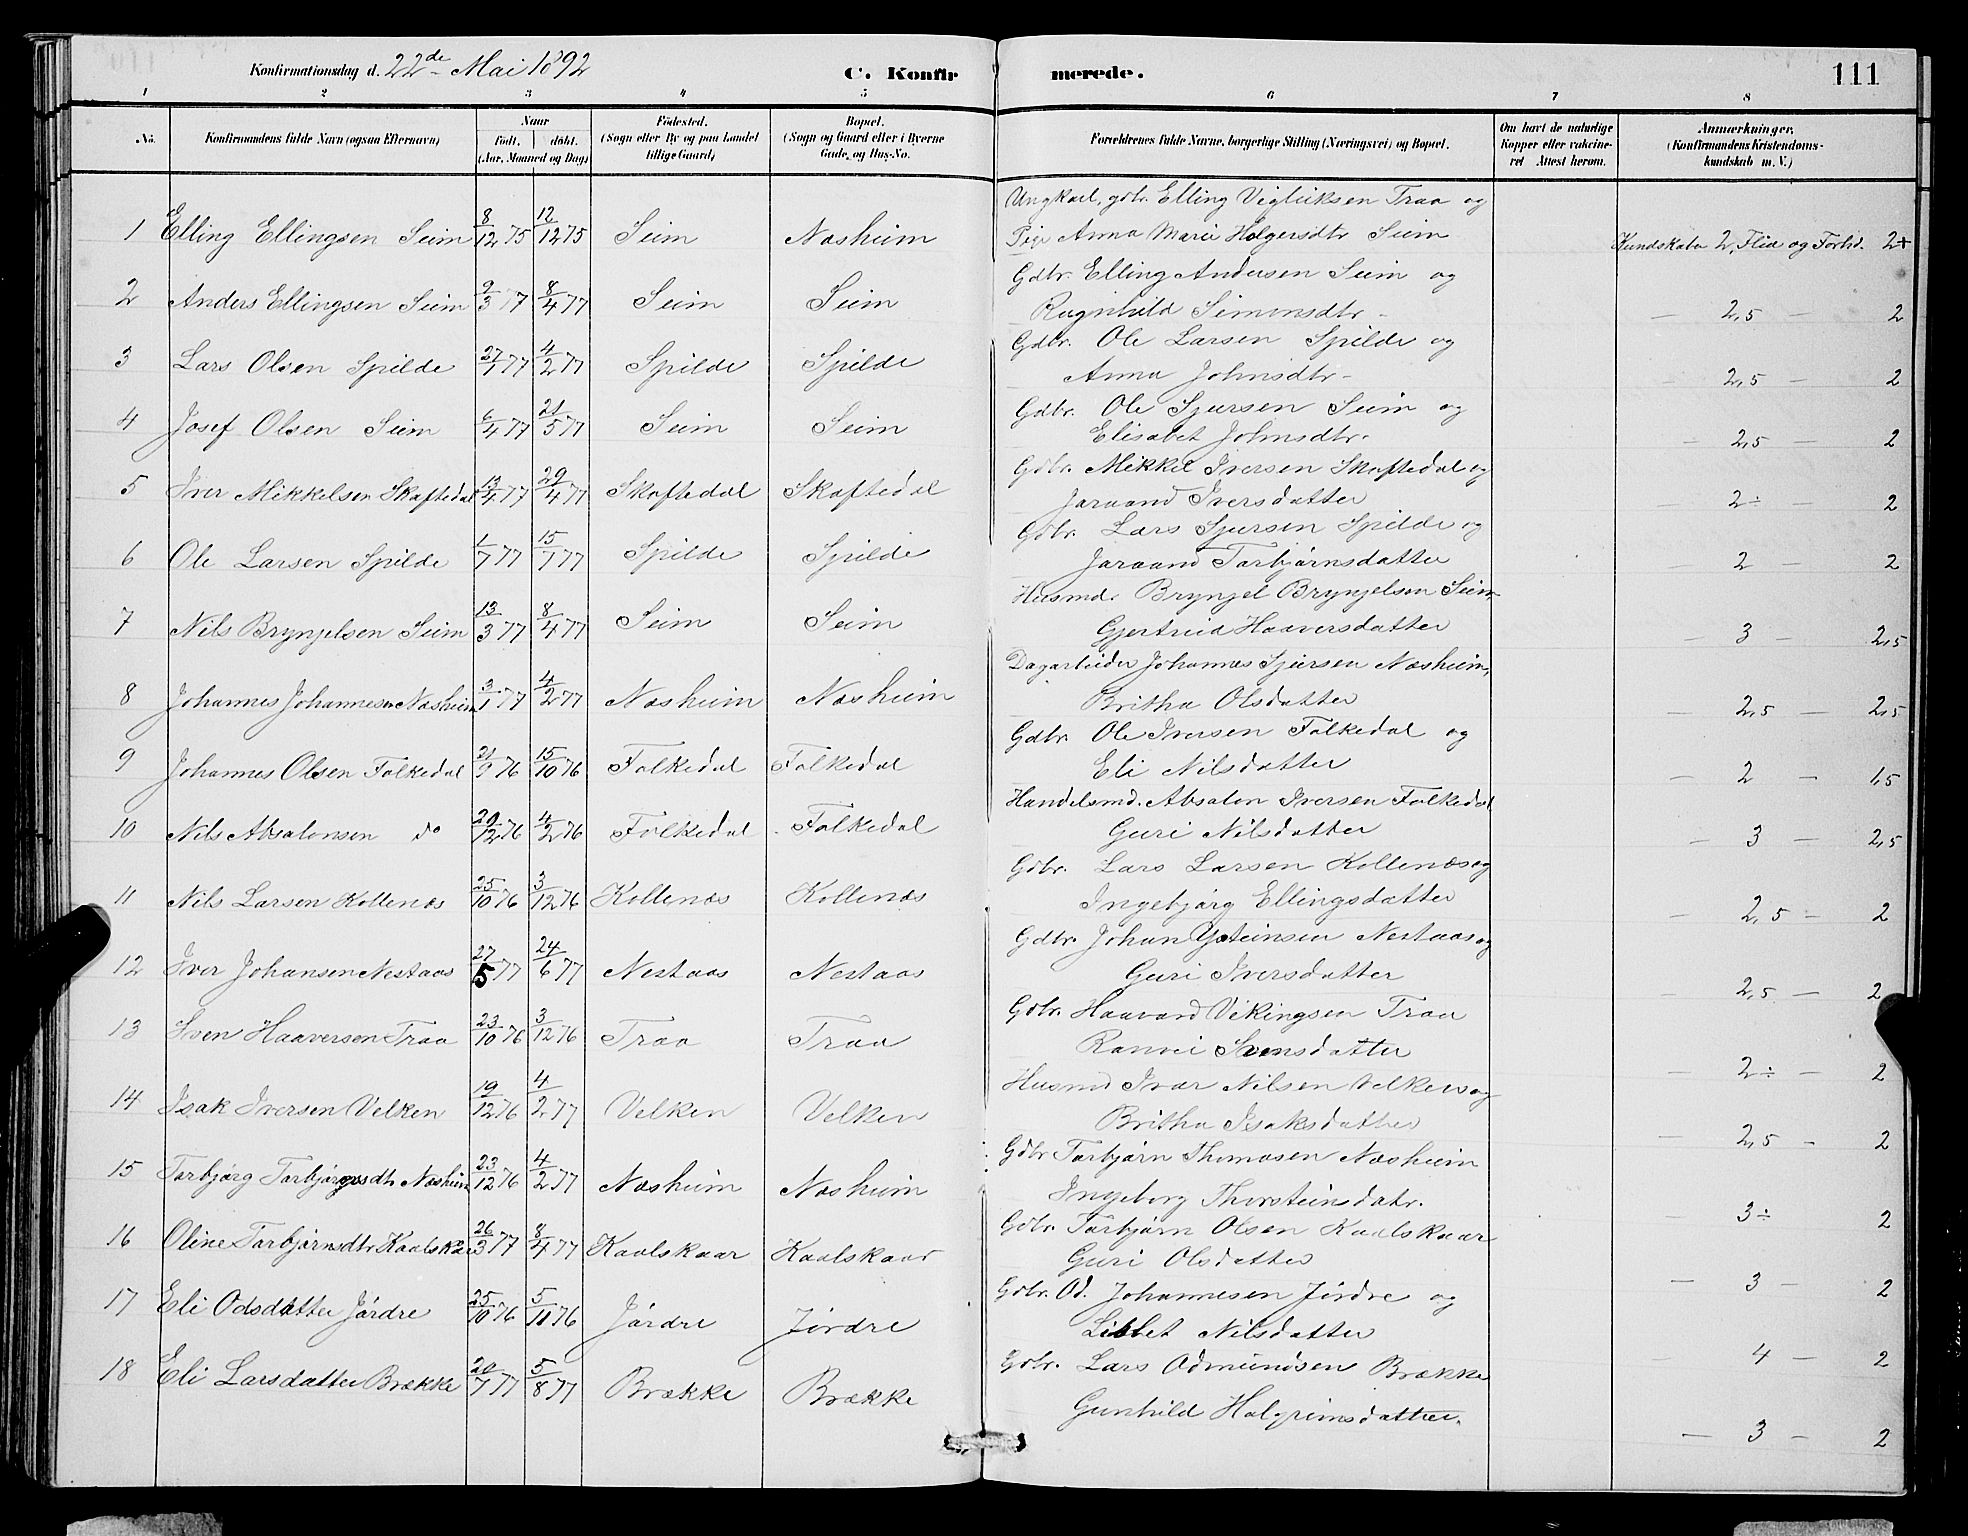 Konfirmationsdag d. 22de Mai 1892 C. Konfir merede. 111
1 2 3 4 5 6 7 8
No. Konfirmandens fulde Navn (ogsaa Efternavn) Naar født, døbt. (Aar, Maaned og Dag) Fødested. (Sogn eller By og paa Landet tillige Gaard) Bopæl. (Sogn og Gaard eller i Byerne Gade og Hus-No. Forældrenes fulde Navne, borgerlige Stilling (Næringsvei) og Bopæl. Om havt de naturlige Kopper eller vakcineret Attest herom. Anmærkninger. (Konfirmandens Kristendomskundskab m. V.)
1 Elling Ellingsen Seim 8/12 75 12/12 75 Seim Næsheim Ungkarl, gdbr. Elling Vigliksen Traa og
Pige Anna Marie Holgersdtr Seim Kundskaber 2, Flid og Forhd. 2+
2 Anders Ellingsen Seim 9/3 77 8/4 77 Seim Seim Gdbr. Elling Andersen Seim og
Ragnhild Simonsdtr - — 2,5 — 2
3 Lars Olsen Spilde 27/1 77 4/2 77 Spilde Spilde Gdbr. Ole Larsen Spilde og
Anna Johnsdtr - — 2,5 — 2
4 Josef Olsen Seim 6/4 77 21/5 77 Seim Seim Gdbr. Ole Sjursen Seim og
Elisabet Johnsdtr. — 2,5 — 2
5 Iver Mikkelsen Skaftedal 13/4 77 29/4 77 Skaftedal Skaftedal Gdbr. Mikkel Iversen Skaftedal og
Jaraand Iversdatter — 2÷ — 2
6 Ole Larsen Spilde 1/7 77 15/7 77 Spilde Spilde Gdbr. Lars Sjursen Spilde og
Jaraand Torbjørnsdatter — 2 — 2
7 Nils Brynjelsen Seim 13/3 77 8/4 77 Seim Seim Husmd. Brynjel Brynjelsen Seim
Gjertrud Haaversdatter — 3 — 2,5
8 Johannes Johannesen Næsheim 3/1 77 4/2 77 Næsheim Næsheim Dagarbeider Johannes Sjursen Næsheim,
Britha Olsdatter — 2,5 — 2,5
9 Johannes Olsen Folkedal 21/9 76 15/10 76 Folkedal Folkedal Gdbr. Ole Iversen Folkedal og
Eli Nilsdatter — 2 — 1,5
10 Nils Absalonsen do 20/12 76 4/2 76 Folkedal Folkedal Handelsmd. Absalon Iversen Folkedal
Guri Nilsdatter — 3 — 2,5
11 Nils Larsen Kollenæs 25/10 76 3/12 76 Kollenæs Kollenæs Gdbr. Lars Larsen Kollenæs og
Ingebjørg Ellingsdatter — 2,5 — 2
12 Iver Johansen Nestaas 27/5 77 24/6 77 Nestaas Nestaas Gdbr. Johan Ysteinsen Nestaas og
Guri Iversdatter — 2,5 — 2
13 Sven Haaversen Traa 23/10 76 3/12 76 Traa Traa Gdbr. Haavard Vikingsen Traa
Ranvei Svensdatter — 2÷ — 2
14 Isak Iversen Velken 19/12 76 4/2 77 Velken Velken Husmd Ivar Nilsen Velken og
Britha Isaksdatter — 2,5 — 2
15 Torbjørg Torbjørnsdtr Næsheim 23/12 76 4/2 77 Næsheim Næsheim Gdbr Torbjørn Thomasen Næsheim
Ingeborg Thorsteinsdatr. — 3÷ 2
16 Oline Torbjørnsdtr Kaalskaar 26/3 77 8/4 77 Kaalskaar Kaalskaar Gdbr. Torbjørn Olsen Kaalskaar
Guri Olsdatter — 3 — 2
17 Eli Odsdatter Jørdre 25/10 76 5/11 76 Jørdre Jørdre Gdbr. Od. Johannesen Jørdre og
Lisbet Nilsdatter — 4 — 2
18 Eli Larsdatter Brække 20/7 77 5/8 77 Brække Brække Gdbr. Lars Odmundsen Brække
Gunhild Halgrimsdatter. — 3 — 2